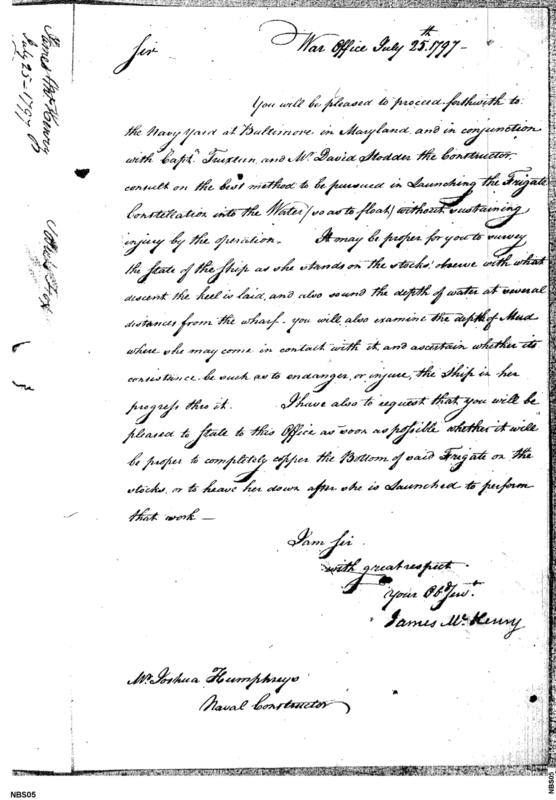 War Office July 25.th 1797-
Sir
You will be pleased to proceed forthwith to
the Navy Yard at Baltimore in Maryland, and in conjunction
with Capt. Truxtun, and Mr. David Stodder the Constructor,
consult on the best method to be pursued in Launching the Frigate
Constellation into the Water (so as to float) without sustaining
injury by the operation. It may be proper for you to survey
the State of the Ship as she stands on the stocks, observe with what
discent the keel is laid, and also sound the depth of water at several
distances from the wharf. you will also examine the depth of Mud
where she may come in contact with it, and ascertain whether its
consistance be such as to endanger, or injure, the Ship in her
progress thro it. I have also to request that you will be
pleased to State to this Office as soon as possible whether it will
be proper to completely copper the Bottom of said Frigate on the
stocks, or to heave her down after she is Launched to perform
that work —
I am Sir
with great respect
your Obd. Servt.
James McHenry
Mr. Joshua Humphreys
Naval Constructor
James McHenry
July 25-1797
NBS05
NBS05